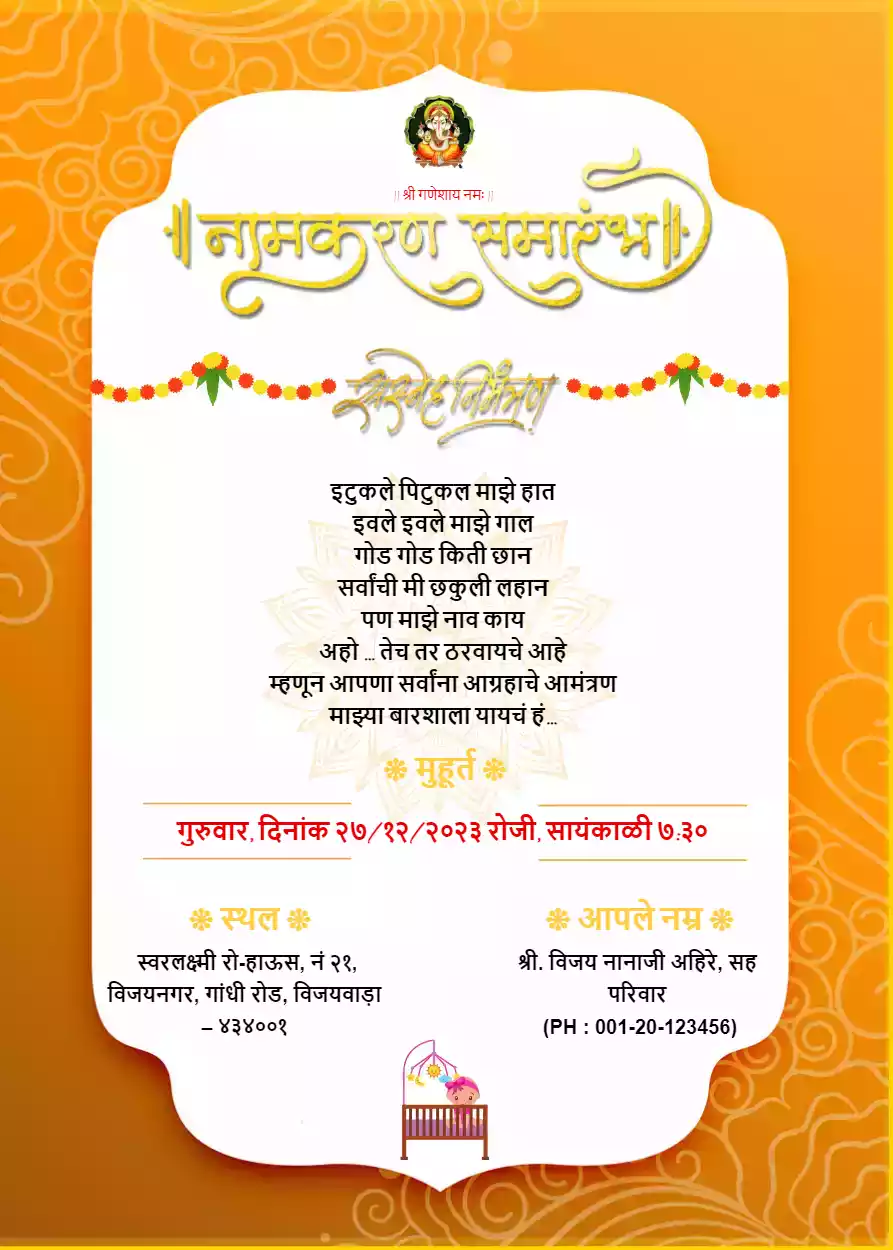 || श्री गणेशाय नमः ||
॥ नामकरण समारंभ ॥
सस्नेह निमंत्रण
इटुकले पिटुकल माझे हात
इवले इवले माझे गाल
गोड गोड किती छान
सर्वांची मी छकुली लहान
पण माझे नाव काय
अहो ... तेच तर ठरवायचे आहे
म्हणून आपणा सर्वांना आग्रहाचे आमंत्रण
माझ्या बारशाला यायचं हं...
❃ मुहूर्त ❃
गुरुवार, दिनांक २७/१२/२०२३ रोजी, सायंकाळी ७:३०
❃ स्थल ❃
स्वरलक्ष्मी रो-हाऊस, नं २१,
विजयनगर, गांधी रोड, विजयवाड़ा
– ४३४००१
❃ आपले नम्र ❃
श्री. विजय नानाजी अहिरे, सह
परिवार
(PH : 001-20-123456)